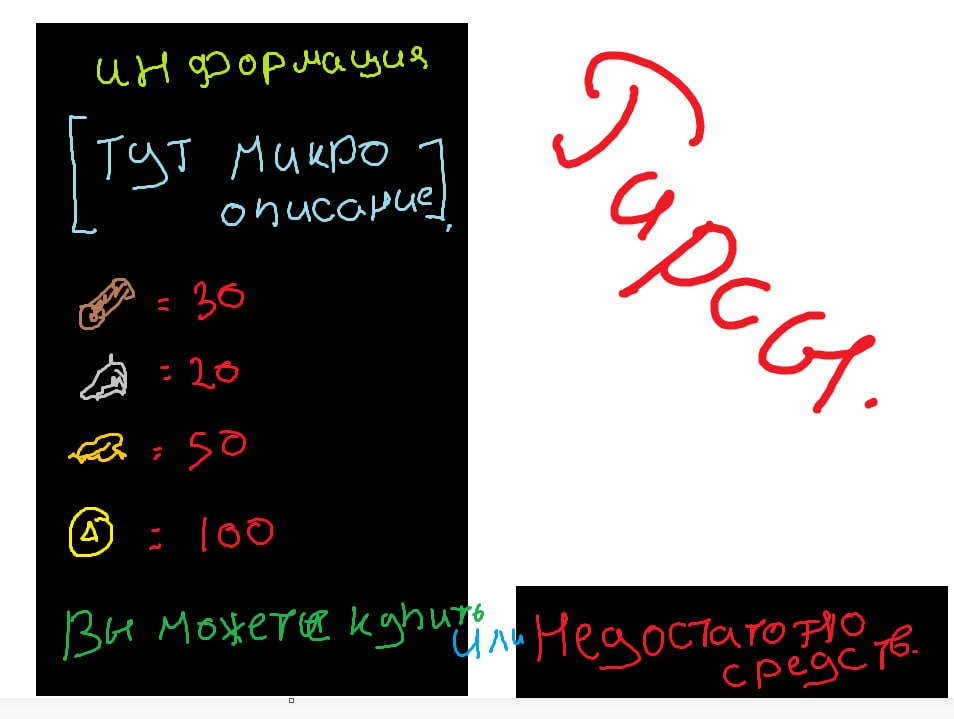 информация
[Тут микро
описание].
= 30
= 20
= 50
= 100
Вы можете купить
или
Недостаточно
средств.